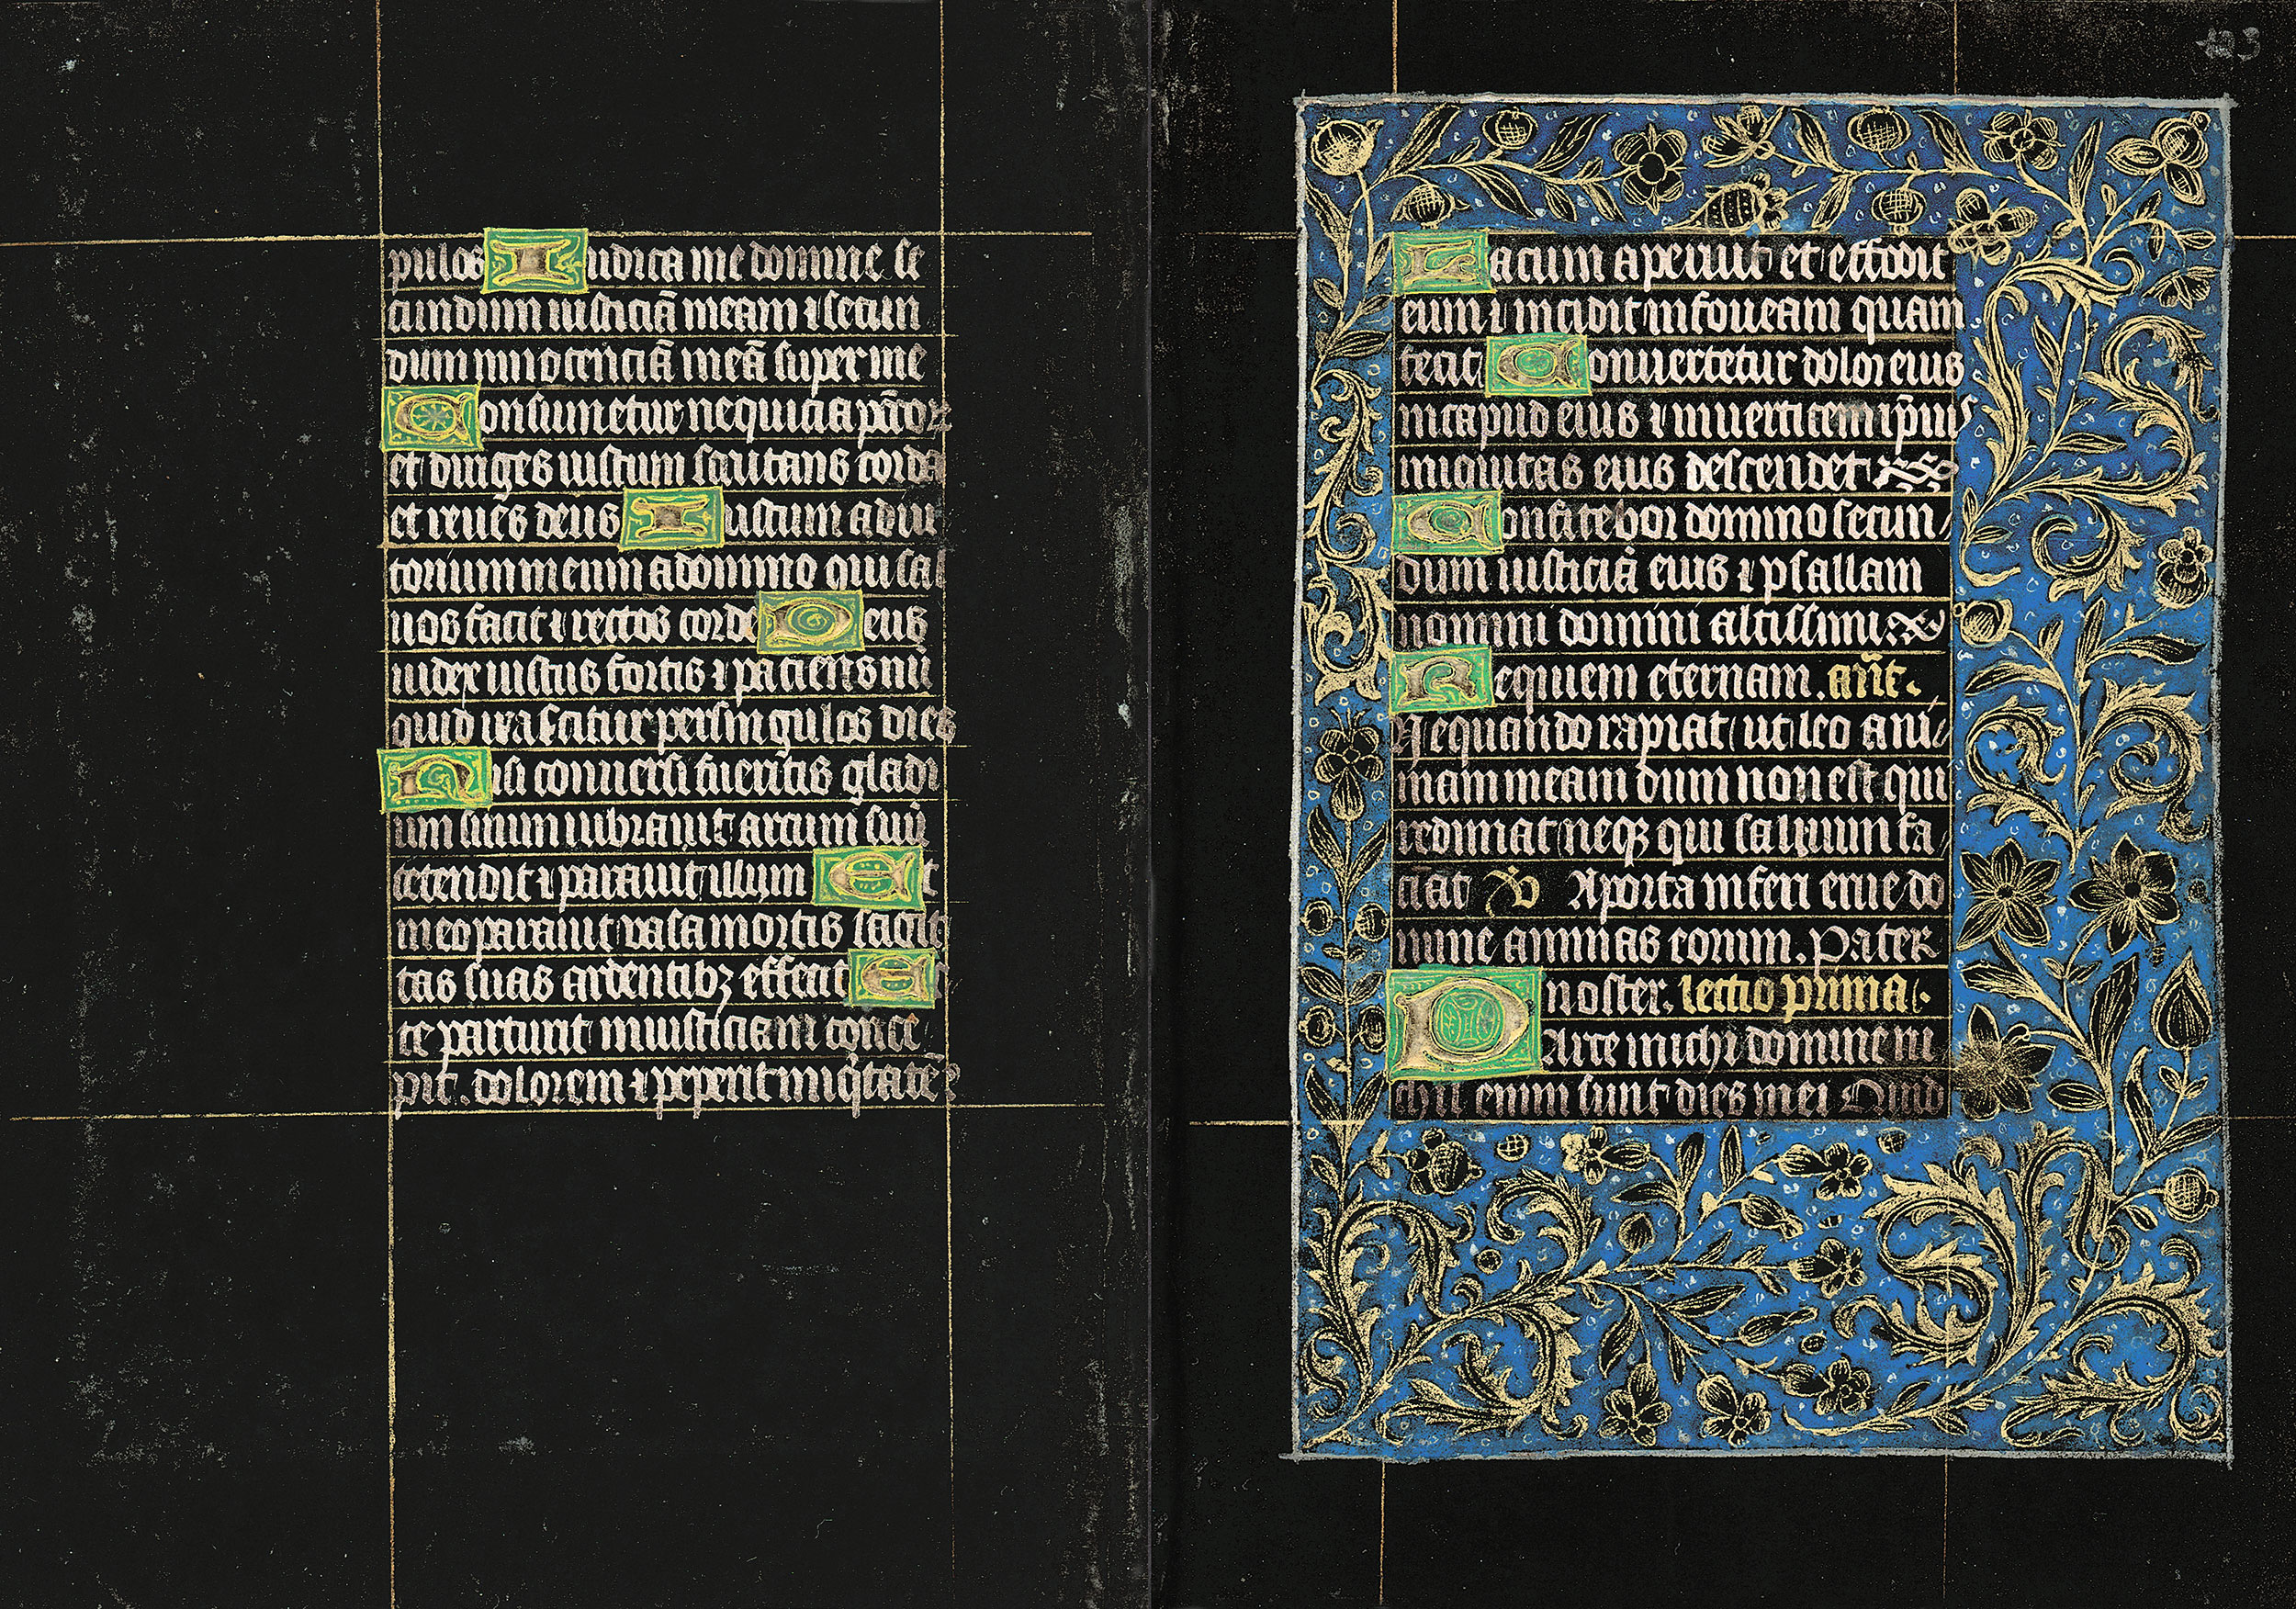 pulos Iudica me domine se
cundum iusticiā meam ⁊ secun
dum innocenciā meā super me
Consumetur nequicia pc̄toꝝ
et diriges iustum scrutans corda
et renes deus Iustum adiu
torium meum a domino qui sal
uos facit ⁊ rectos corde Deus
iudex iustus fortis ⁊ paciens nū
quid irascitur per singulos dies
Nisi conuersi fueritis gladi
um suum uibrauit arcum suū
tetendit ⁊ parauit illum Et
in eo parauit uasa mortis sagit
tas suas ardentibꝫ effecit Ec
ce parturit iniusticiam conce
pit . dolorem ⁊ peperit iniq̇tatē
123
Lacum aperuit et effodit
eum ⁊ incidit in foueam quam
fecit Conuertetur dolor eius
in capud eius ⁊ in uerticem ip̄ius
iniquitas eius descendet
Confitebor domino secun/
dum iusticiā eius ⁊ psallam
nomini domini altissimi
Requiem eternam . añt.
Nequando rapiat ut leo ani/
mam meam dum non est qui
redimat neqꝫ qui saluum fa/
ciat ℣ A porta inferi erue do
mine animas eorum . Pater
noster . lectio prima .
PArce michi domine ni
chil enim sunt dies mei Quid